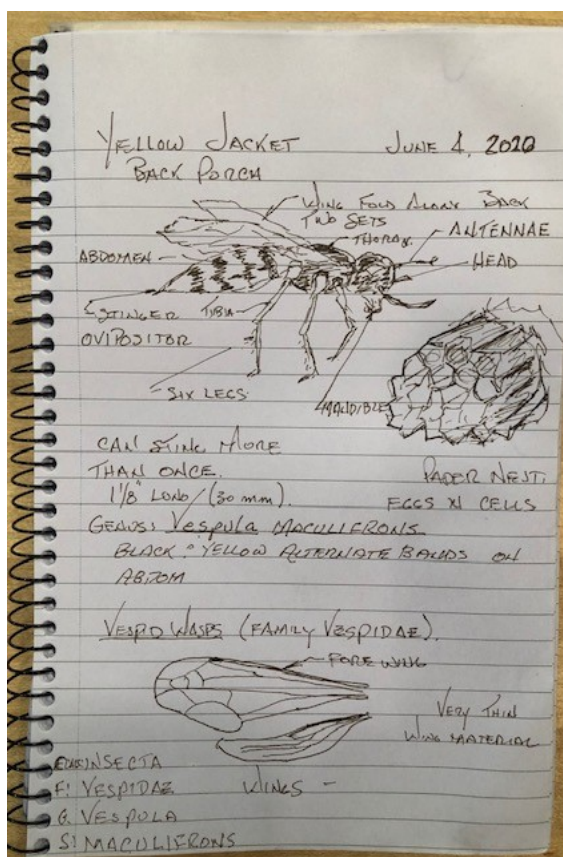 YELLOW JACKET
JUNE 4, 2020
BACK PORCH
WING FOLD ALONG BACK
TWO SETS
THORAX
ANTENNAE
ABDOMEN
HEAD
STINGER
TIBIA
OVIPOSITOR
SIX LEGS
MANDIBLE
CAN STING MORE
THAN ONCE.
1 1/8" LONG/(30 mm).
PAPER NEST:
EGGS IN CELLS
GENUS: Vespula MACULIFRONS
BLACK & YELLOW ALTERNATE BANDS ON
ABDOM
VESPID WASPS (FAMILY VESPIDAE).
FORE WING
VERY THIN
WING MATERIAL
INSECTA
F: VESPIDAE
WINGS -
G. VESPULA
S: MACULIFRONS